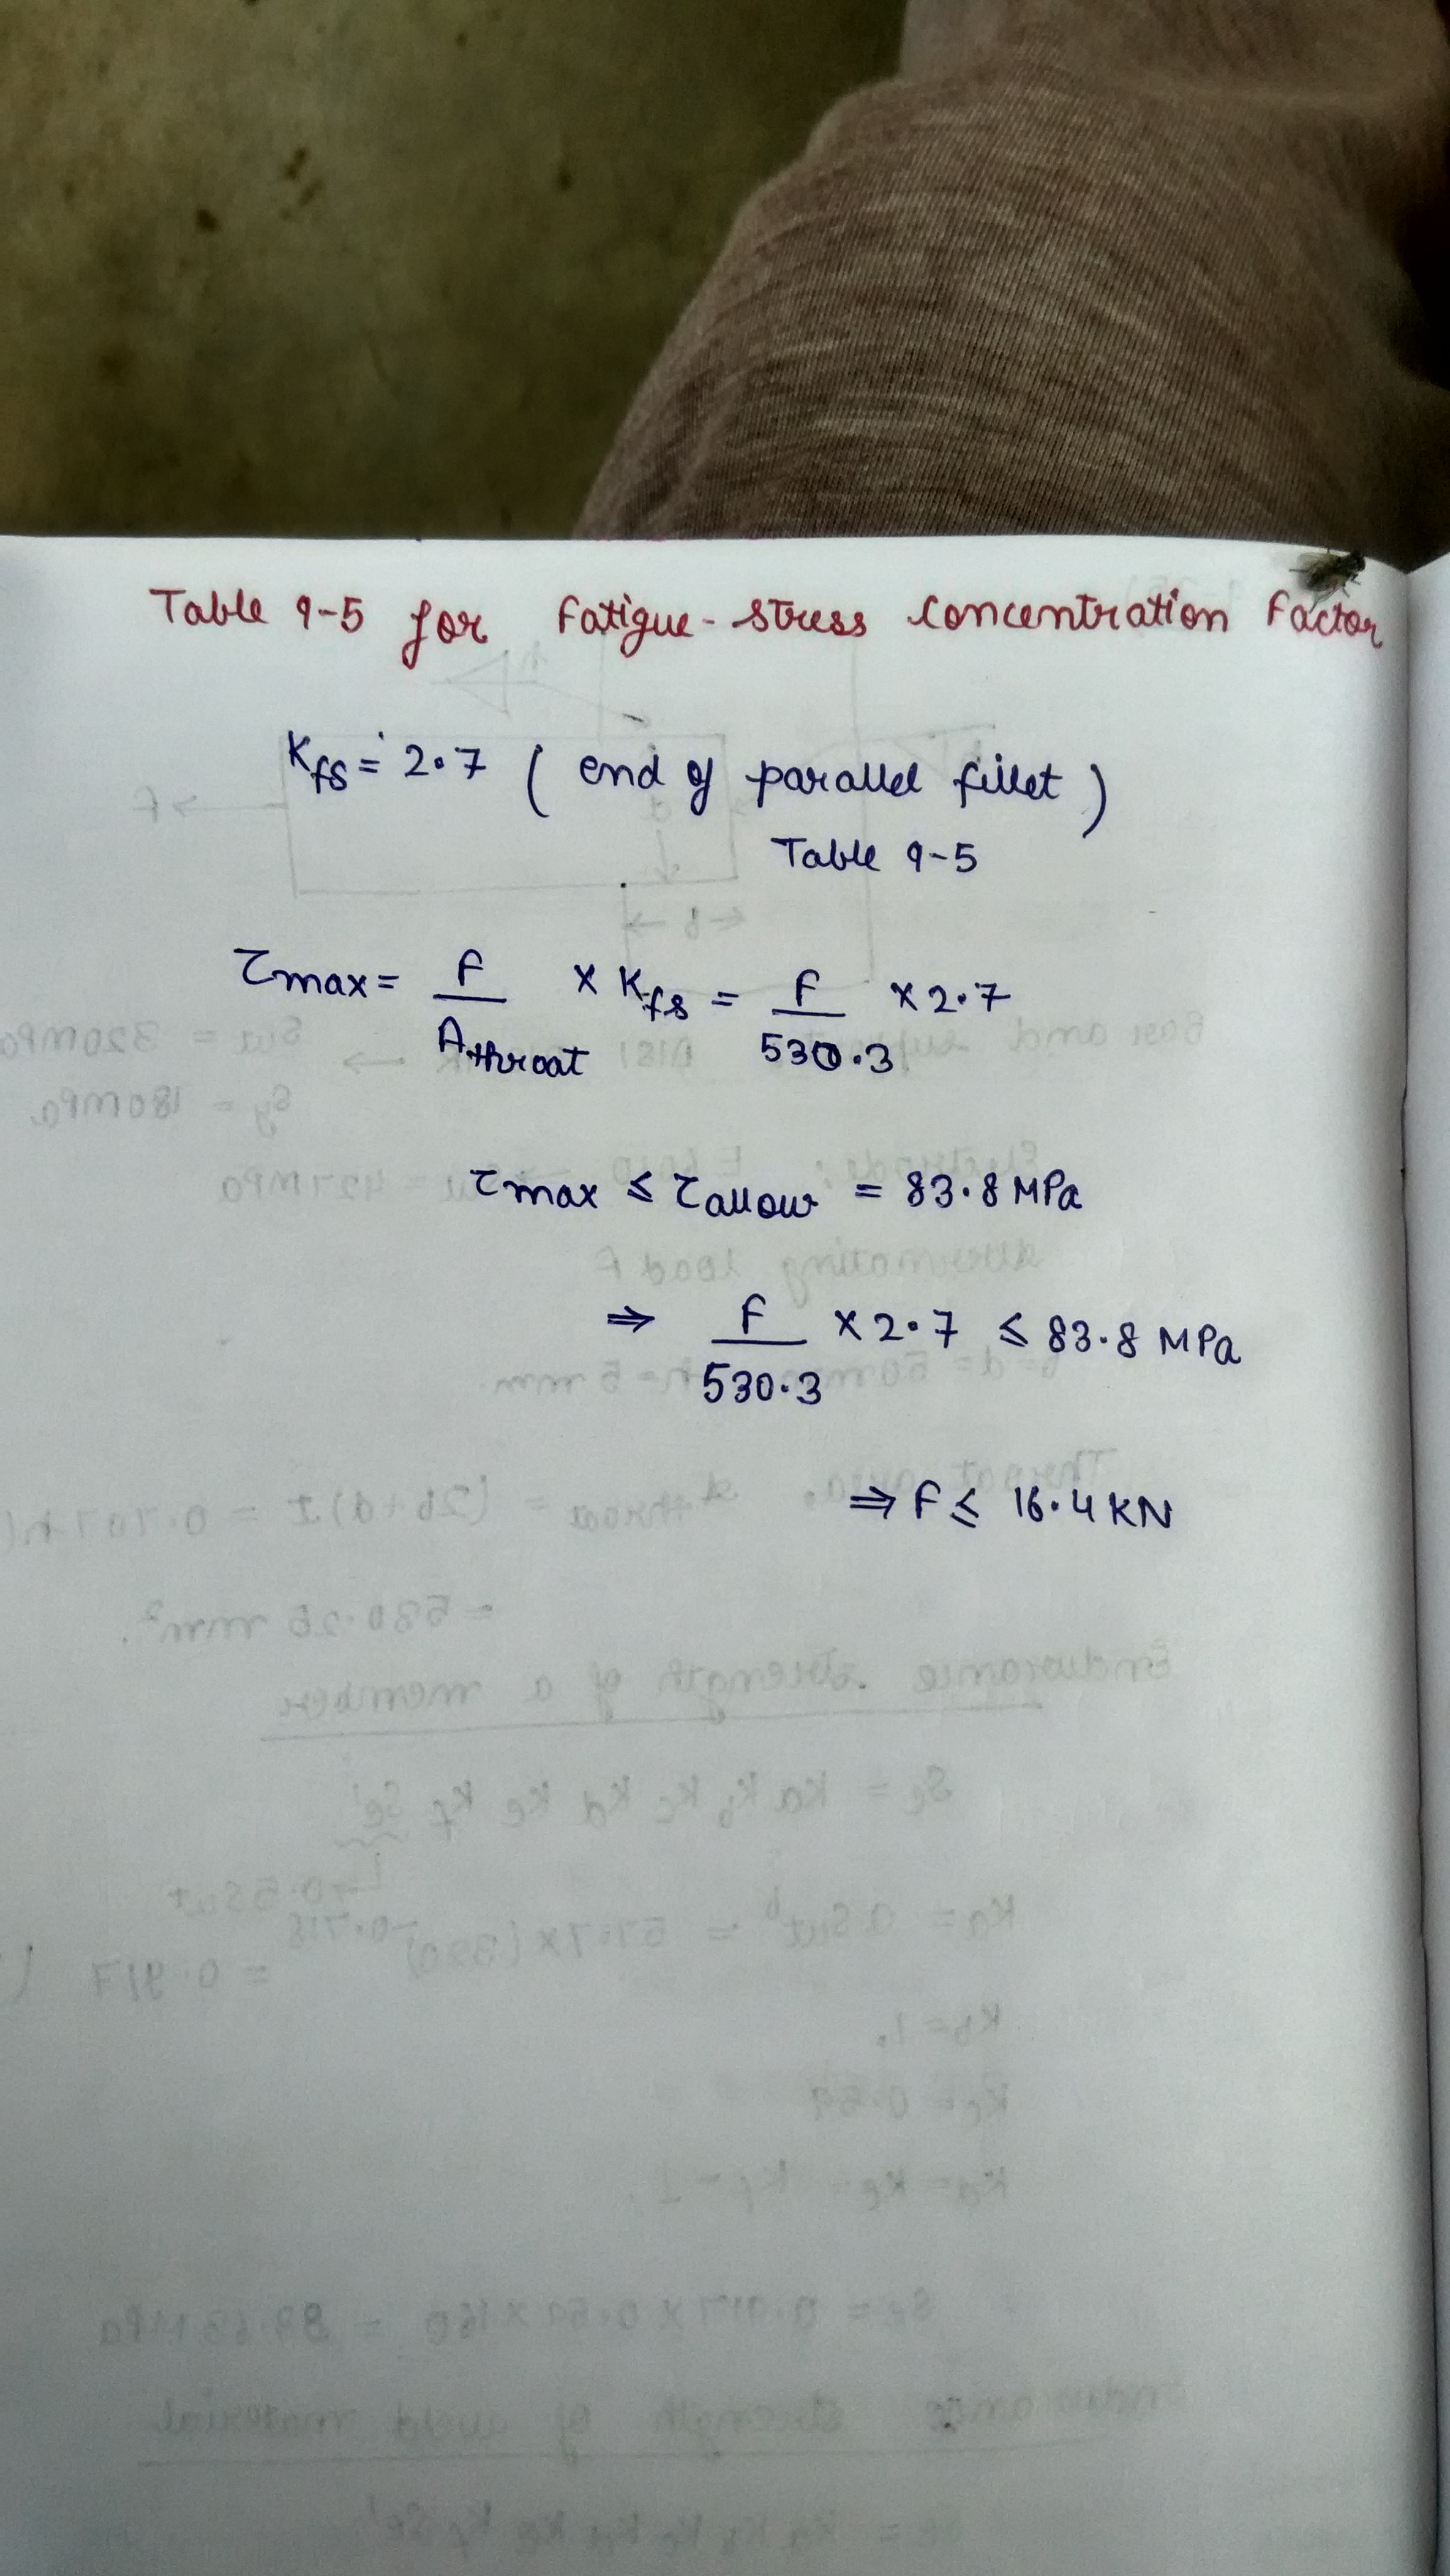 Table 9-5 for Fatigue-stress concentration Factor
Kfs = 2.7 ( end of parallel fillet )
Table 9-5
τmax = F / Athroat × Kfs = F / 530.3 × 2.7
τmax ≤ τallow = 83.8 MPa
⇒ F / 530.3 × 2.7 ≤ 83.8 MPa
⇒ F ≤ 16.4 KN